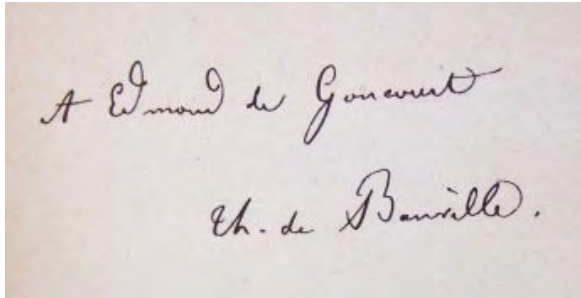 A Edmond de Goncourt
Th. de Banville.